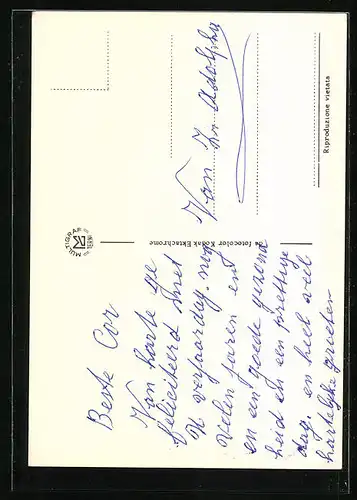 Beste Cor
Van harte ge
feliciteerd met
U verjaardag. nog
velen jaren en
en een goede gezond
heid en een prettige
dag. en heel veel
hartelijke groeten
Van Adolphs
da fotocolor Kodak Ektachrome
MULTIGRAF
TERNI
Riproduzione vietata